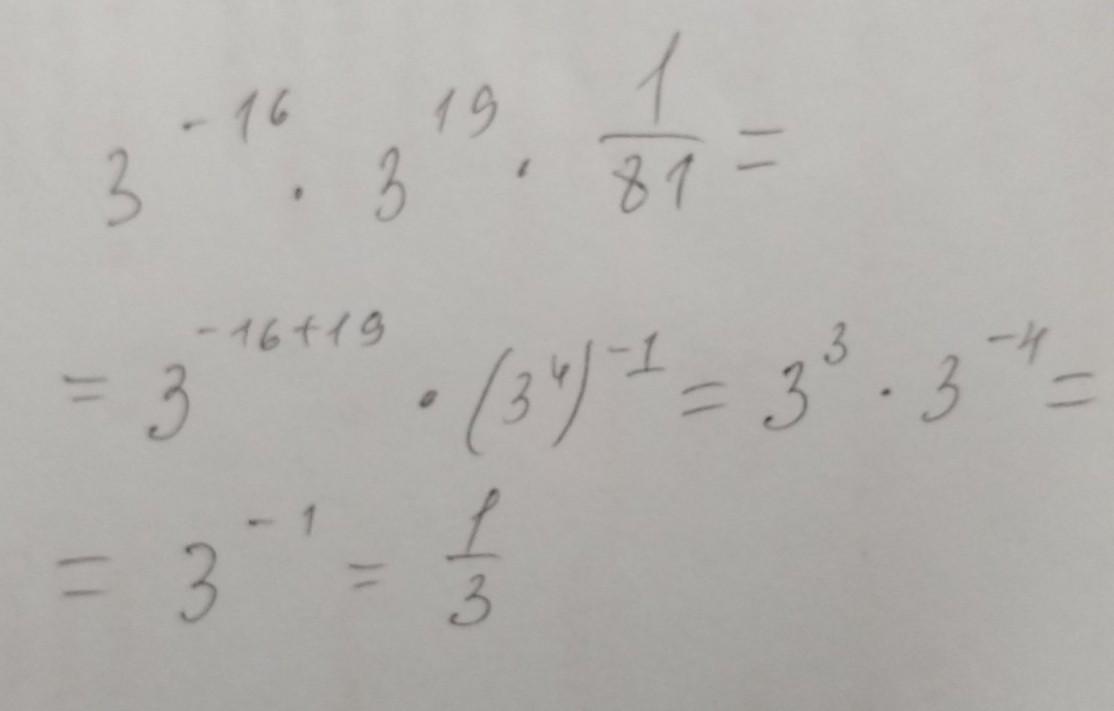 3^{-16} · 3^{19} · \frac{1}{81} =
= 3^{-16+19} · (3^4)^{-1} = 3^3 · 3^{-4} =
= 3^{-1} = \frac{1}{3}